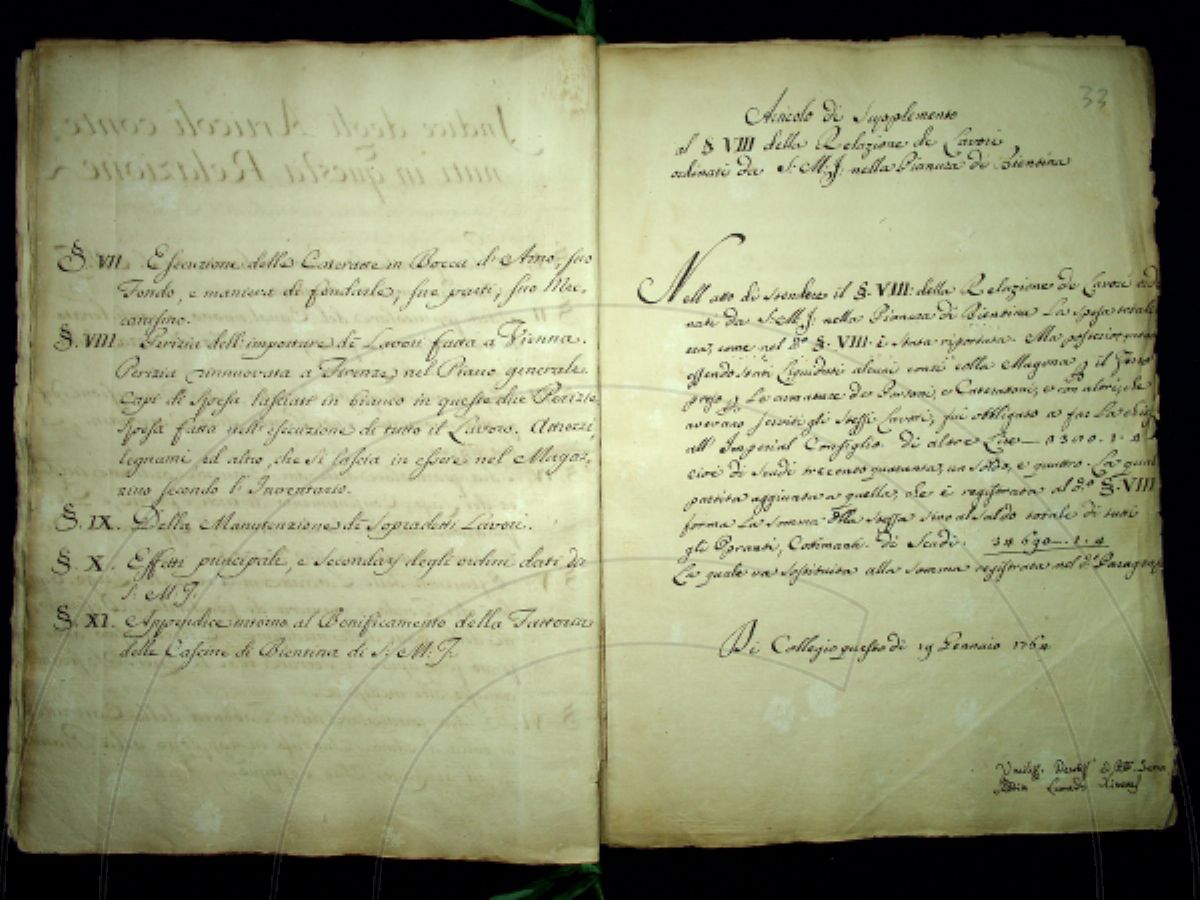 §. VII. Esecuzione delle Cateratte in Bocca d'Arno, suo
Fondo, e maniera di fondarle, sue parti, suo Mec-
canismo.
§. VIII. Perizia dell'importare de Lavori fatta a Vienna.
Perizia rinnuovata a Firenze nel Piano generale.
Capi di spesa lasciati in bianco in queste due Perizie.
Spesa fatta nell'esecuzione di tutto il Lavoro. Attrezzi,
legnami ed altro, che si lascia in essere nel Magaz-
zino secondo l'Inventario.
§. IX. Della Manutenzione de Sopradetti Lavori.
§. X. Effetti principali, e Secondarj degli ordini dati da
S. M. J.
§. XI. Appendice intorno al Bonificamento della Fattoria
delle Cascine di Bientina di S: M: J.
33
Articolo di Supplemento
al § VIII della Relazione de Lavori
ordinati da S: M. J: nella Pianura di Bientina
Nell'atto di stendere il §. VIII: della Relazione de Lavori
nati da S: M. J. nella Pianura di Bientina La spesa totale
come nel d.º §. VIII. è stata riportata. Ma
essendo stati Liquidati alcuni conti colla Magona il
Le armature de Portoni, e Cateratton, e con altri, che
avevano serviti gli stessi Lavori, fui obbligato a far La
all'Imperial Consiglio di altre Lire
cioè di Scudi trecento quaranta, un soldo, e quattro. La qual
partita aggiunta a quella, che è registrata al d.º §. VIII
forma La somma stessa sino al saldo totale di tutti
gli Opranti, Cottimanti. di Scudi. 34690.. 1. 4
La quale va sostituita alla somma registrata nel d.º Paragrafo
Di Collegio questo dì 19 Gennaio 1764
Umiliss. Devotiss.
Leonardo Ximenes